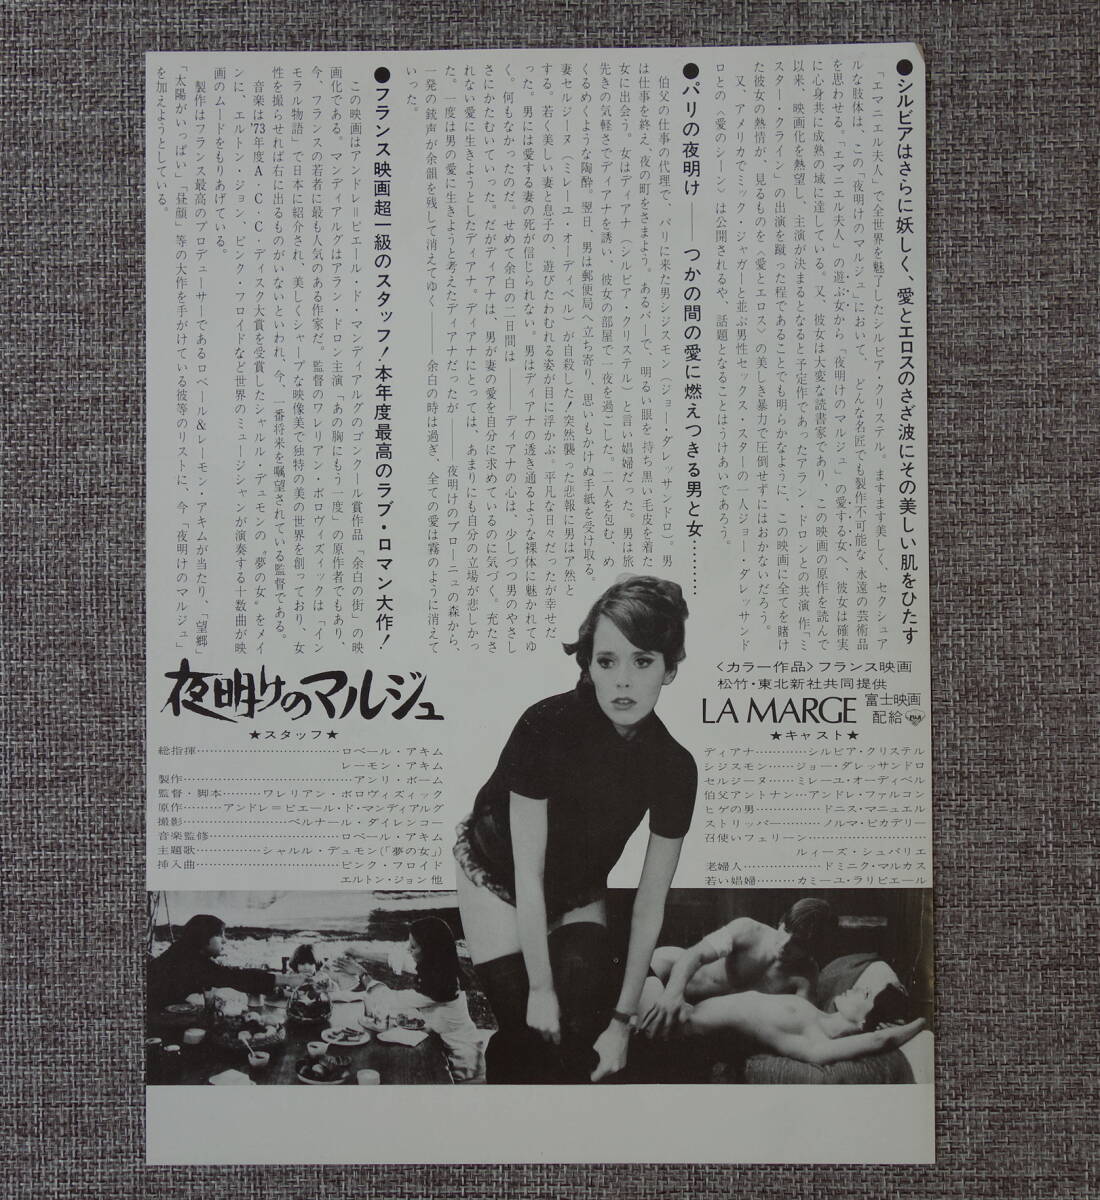 ●シルビアはさらに妖しく、愛とエロスのさざ波にその美しい肌をひたす
「エマニエル夫人」で全世界を魅了したシルビア・クリステル。ますます美しく、セクシュア
ルな肢体は、この「夜明けのマルジュ」において、どんな名匠でも製作不可能な永遠の芸術品
を思わせる。「エマニエル夫人」の遊ぶ女から、「夜明けのマルジュ」の愛する女へ、彼女は確実
に心身共に成熟の域に達している。又、彼女は大変な読書家であり、この映画の原作を読んで
以来、映画化を熱望し、主演が決まるとなると予定作であったアラン・ドロンとの共演作「ミ
スター・クライン」の出演を蹴った程であることでも明らかなように、この映画に全てを賭け
た彼女の熱情が、見るものを〈愛とエロス〉の美しき暴力で圧倒せずにはおかないだろう。
又、アメリカでミック・ジャガーと並ぶ男性セックス・スターの一人ジョー・ダレッサンド
ロとの〈愛のシーン〉は公開されるや、話題となることはうけあいであろう。
●パリの夜明け――つかの間の愛に燃えつきる男と女………
伯父の仕事の代理で、パリに来た男シジスモン（ジョー・ダレッサンドロ）。男
は仕事を終え、夜の町をさまよう。あるバーで、明るい眼を持ち黒い毛皮を着た
女に出会う。女はディアナ（シルビア・クリステル）と言い娼婦だった。男は旅
先きの気軽さでディアナを誘い、彼女の部屋で一夜を過ごした。二人を包む、め
くるめくような陶酔。翌日、男は郵便局へ立ち寄り、思いもかけぬ手紙を受け取る。
妻セルジーヌ（ミレーユ・オーディベル）が自殺した！突然襲った悲報に男はア然と
する。若く美しい妻と息子の、遊びたわむれる姿が目に浮かぶ。平凡な日々だったが幸せだ
った。男には愛する妻の死が信じられない。男はディアナの透き通るような裸体に魅かれてゆ
く。何もなかったのだ。せめて余白の二日間は――ディアナの心は、少しづつ男のやさし
さにかたむいていった。だがディアナは、男が妻の愛を自分に求めているのに気づく。充たさ
れない愛に生きようとしたディアナ。ディアナにとっては、あまりにも自分の立場が悲しかっ
た。一度は男の愛に生きようと考えたディアナだったが――夜明けのブローニュの森から、
一発の銃声が余韻を残して消えてゆく――余白の時は過ぎ、全ての愛は霧のように消えて
いった。
●フランス映画超一級のスタッフ！本年度最高のラブ・ロマン大作！
この映画はアンドレ＝ピエール・ド・マンディアルグのゴンクール賞作品「余白の街」の映
画化である。マンディアルグはアラン・ドロン主演「あの胸にもう一度」の原作者でもあり、
今、フランスの若者に最も人気のある作家だ。監督のワレリアン・ボロヴィズィックは「イン
モラル物語」で日本に紹介され、美しくシャープな映像美で独特の美の世界を創っており、女
性を撮らせれば右に出るものがいないといわれ、今、一番将来を嘱望されている監督である。
音楽は'73年度A・C・C・ディスク大賞を受賞したシャルル・デュモンの〝夢の女〟をメイ
ンに、エルトン・ジョン、ピンク・フロイドなど世界のミュージシャンが演奏する十数曲が映
画のムードをもりあげている。
製作はフランス最高のプロデューサーであるロベール＆レーモン・アキムが当たり、「望郷」
「太陽がいっぱい」「昼顔」等の大作を手がけている彼等のリストに、今「夜明けのマルジュ」
を加えようとしている。
夜明けのマルジュ
★スタッフ★
総指揮………ロベール・アキム
レーモン・アキム
製作………アンリ・ボーム
監督・脚本………ワレリアン・ボロヴィズィック
原作………アンドレ＝ピエール・ド・マンディアルグ
撮影………ベルナール・ダイレンコー
音楽監修………ロベール・アキム
主題歌………シャルル・デュモン(「夢の女」)
挿入曲………ピンク・フロイド
エルトン・ジョン他
〈カラー作品〉フランス映画
松竹・東北新社共同提供
LA MARGE 富士映画配給
★キャスト★
ディアナ………シルビア・クリステル
シジスモン………ジョー・ダレッサンドロ
セルジーヌ………ミレーユ・オーディベル
伯父アントナン………アンドレ・ファルコン
ヒゲの男………ドニス・マニュエル
ストリッパー………ノルマ・ピカデリー
召使いフェリーン………
ルィーズ・シュバリエ
老婦人………ドミニク・マルカス
若い娼婦………カミーユ・ラリビエール